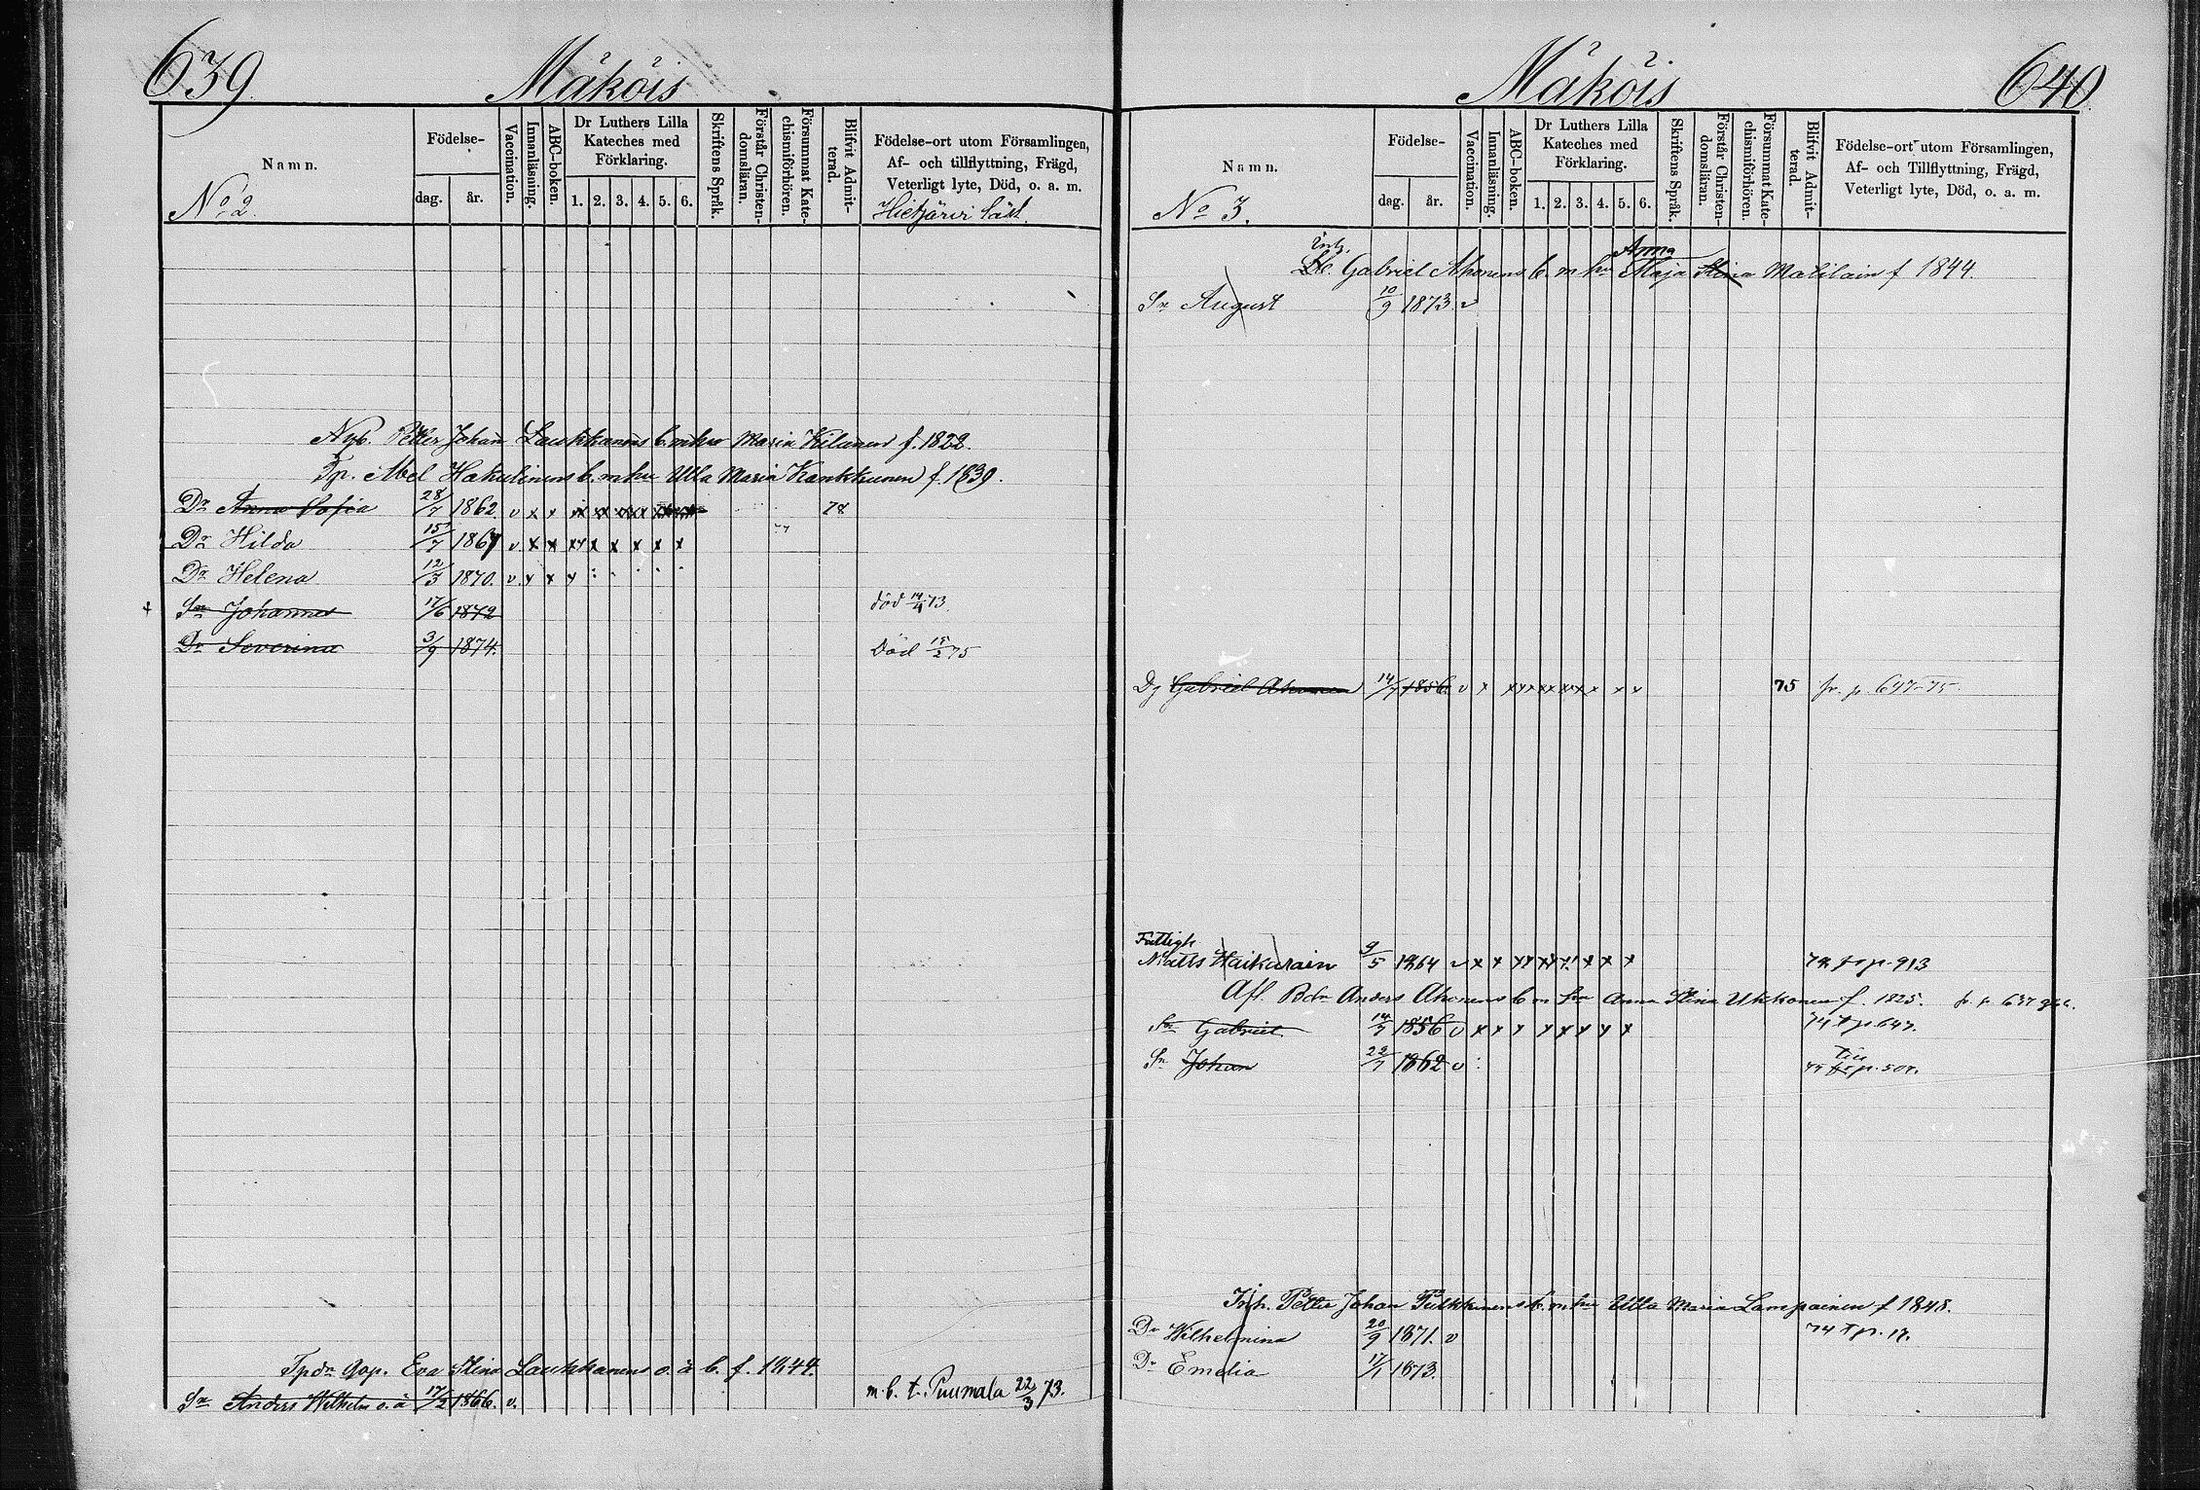 639
Mäköis
Namn.
Födelse-
dag.
år.
Vaccination.
Innanläsning.
ABC-boken.
Dr Luthers Lilla
Kateches med
Förklaring.
1. 2. 3. 4. 5. 6.
Skriftens Språk.
Förstår Christen-
domsläran.
Försummat Kate-
chismiförhören.
Blifvit Admit-
terad.
Födelse-ort utom Församlingen,
Af- och tillflyttning, Frägd,
Veterligt lyte, Död, o. a. m.
No 2.
Hietjärvi
Nyb. Petter Johan Laukkanens b. m hu Maria Kilunen f. 1822.
Tp. Abel Hakulinens b. m hu Ulla Maria Kankkunen f. 1839.
Dr Anna Sofia 28/7 1862 v x x 78
Dr Hilda 15/7 1867 v x x x x x x x x
Dr Helena 12/3 1870. v x x x
Sn Johannes 17/6 1872 död 14/4 73.
Dr Severina 3/9 1874. Död 15/2 75
Tpdr qvp. Eva Stina Laukkanens o. ä b. f. 1844.
Sn Anders Wilhelm o. ä 17/2 1866. v. m. b. t. Puumala 22/3 73.
Mäköis
640
Namn.
Födelse-
dag.
år.
Vaccination.
Innanläsning.
ABC-boken.
Dr Luthers Lilla
Kateches med
Förklaring.
1. 2. 3. 4. 5. 6.
Skriftens Språk.
Förstår Christen-
domsläran.
Försummat Kate-
chismiförhören.
Blifvit Admit-
terad.
Födelse-ort utom Församlingen,
Af- och Tillflyttning, Frägd,
Veterligt lyte, Död, o. a. m.
No 3.
Inh. Anna
Gabriel Ahonens b. m hu Maja Stina Matilain f 1844.
Sn August 10/9 1873 v
Dg Gabriel Ahonen 14/7 1856 v x 75 fr. p 647-75
Fattigh
Matts Haikarain 9/5 1864 v x x 913
Afl. Bdn Anders Ahonens b m hu Anna Stina Ukkonen f. 1825. fr. p 637
Sn Gabriel 14/7 1856 v x x x x x x x x 74 t p 647.
till
Sn Johan 22/7 1862 v 75 p. 507.
Inh. Petter Johan Pulkkinens b. m hu Ulla Maria Lampainen f 1848.
Dr Wilhelmina 20/9 1871. v 74 t p. 17.
Dr Emelia 17/1 1873.